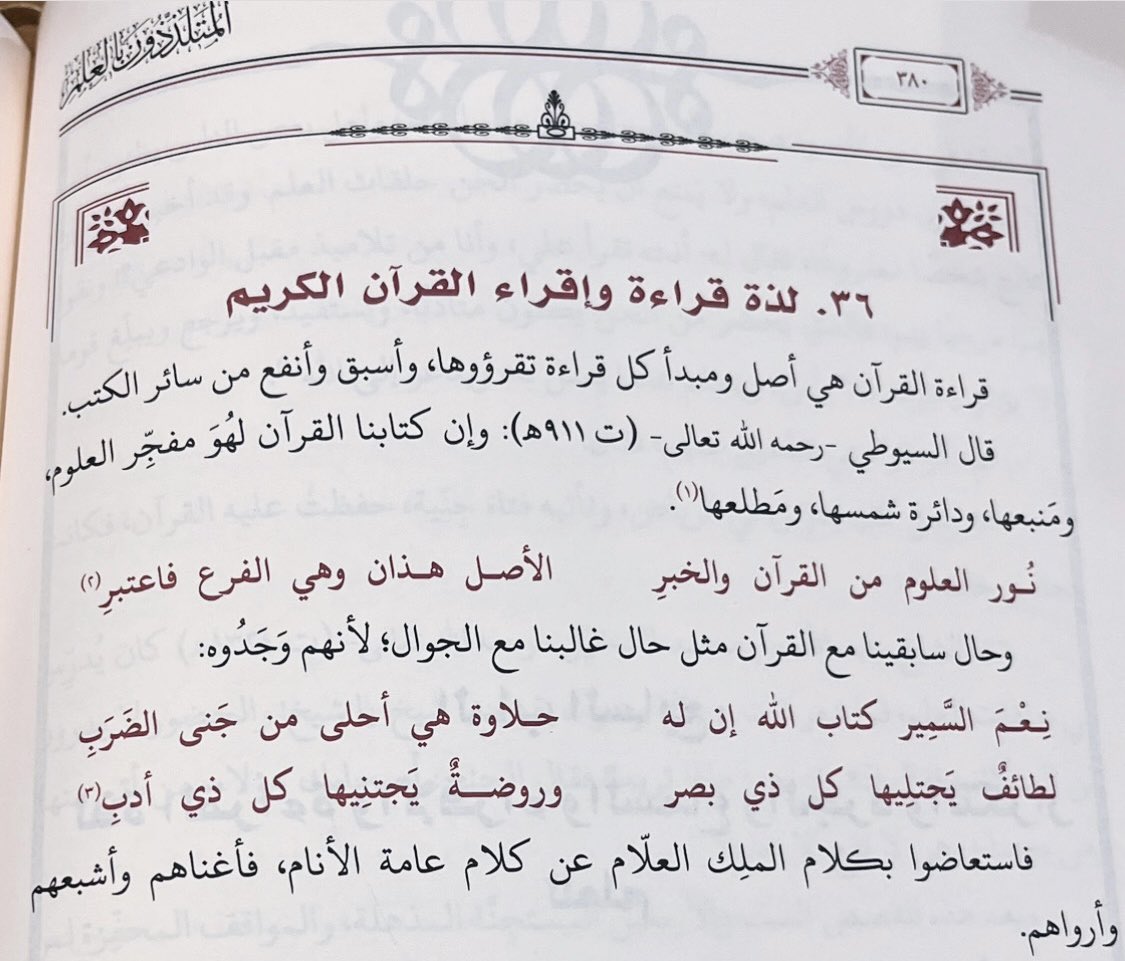 المتلذذون بالعلم
٣٨٠
٣٦. لذة قراءة وإقراء القرآن الكريم
قراءة القرآن هي أصل ومبدأ كل قراءة تقرؤوها، وأسبق وأنفع من سائر الكتب.
قال السيوطي -رحمه الله تعالى- (ت ٩١١هـ): وإن كتابنا القرآن لهُوَ مفجِّر العلوم،
ومَنبعها، ودائرة شمسها، ومَطلعها(١).
نُـور العلوم من القرآن والخبرِ الأصـل هـذان وهي الفرع فاعتبرِ(٢)
وحال سابقينا مع القرآن مثل حال غالبنا مع الجوال؛ لأنهم وَجَدُوه:
نِـعْـمَ السَّمِير كتاب الله إن له حـلاوة هي أحلى من جَنى الضَرَبِ
لطائفٌ يَجتلِيها كل ذي بصر وروضـــةٌ يَجتنِيها كل ذي أدبِ(٣)
فاستعاضوا بكلام الملِك العلّام عن كلام عامة الأنام، فأغناهم وأشبعهم
وأرواهم.